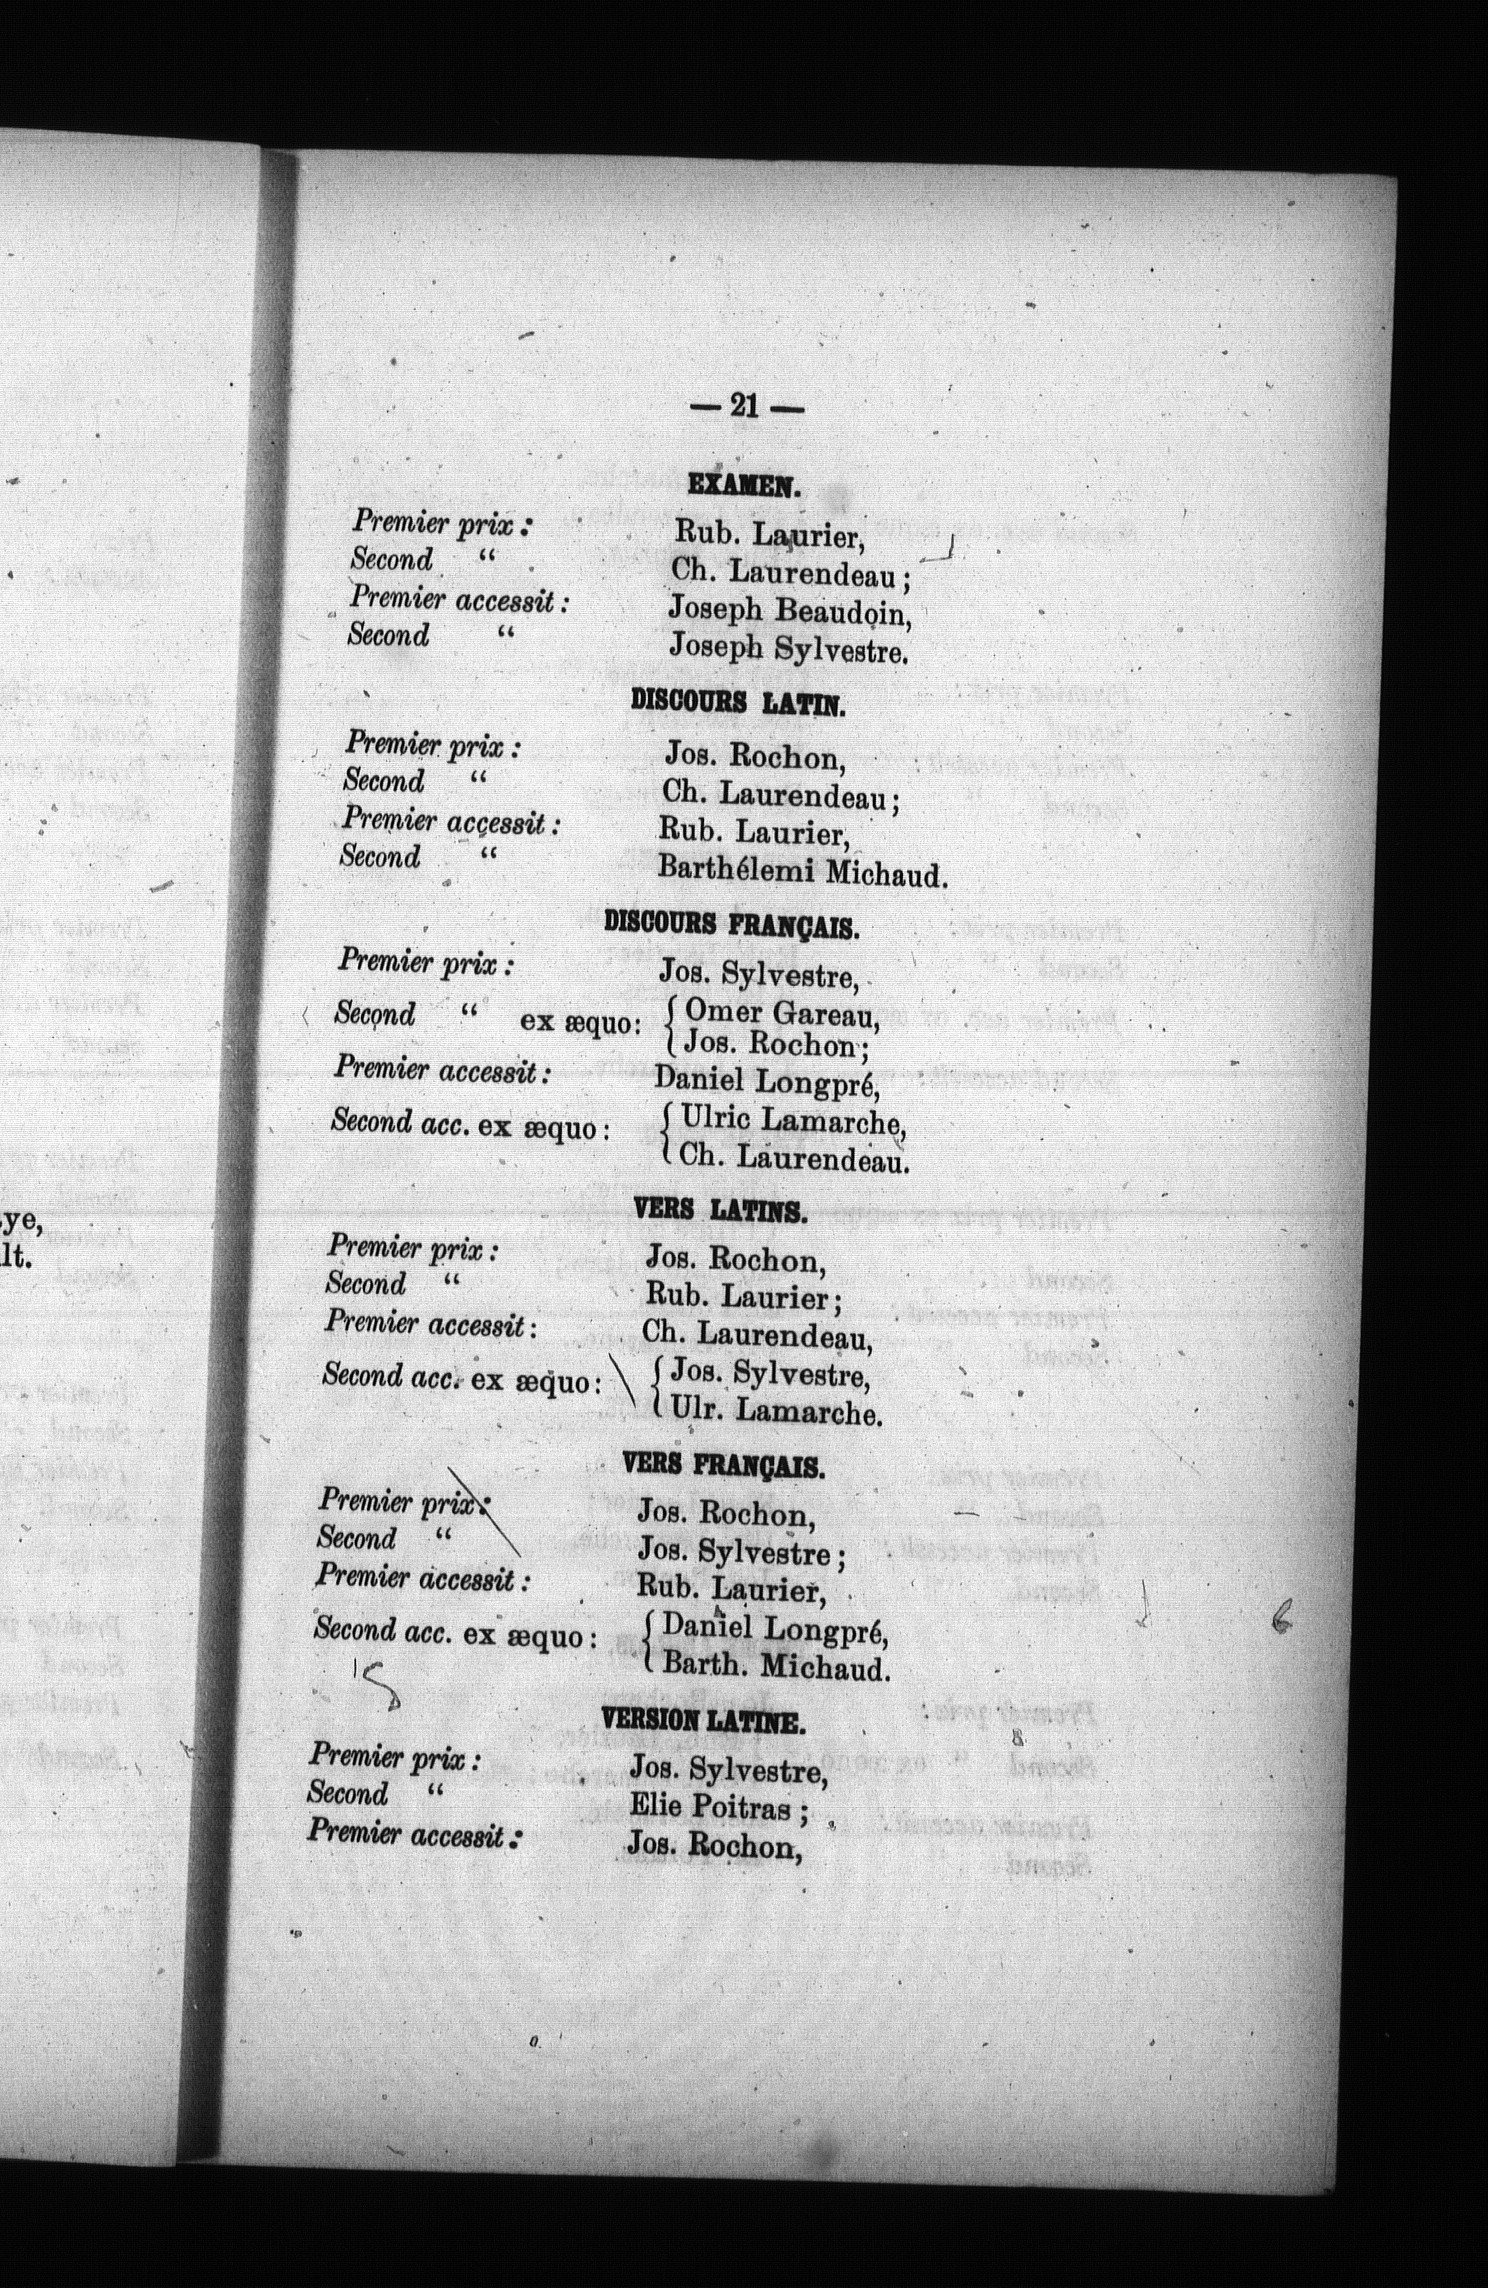 — 21 —
EXAMEN.
Premier prix : Rub. Laurier,
Second “ Ch. Laurendeau ;
Premier accessit : Joseph Beaudoin,
Second “ Joseph Sylvestre.
DISCOURS LATIN.
Premier prix : Jos. Rochon,
Second “ Ch. Laurendeau ;
Premier accessit : Rub. Laurier,
Second “ Barthélemi Michaud.
DISCOURS FRANÇAIS.
Premier prix : Jos. Sylvestre,
Second “ ex æquo : { Omer Gareau,
Jos. Rochon ;
Premier accessit : Daniel Longpré,
Second acc. ex æquo : { Ulric Lamarche,
Ch. Laurendeau.
VERS LATINS.
Premier prix : Jos. Rochon,
Second “ Rub. Laurier ;
Premier accessit : Ch. Laurendeau,
Second acc. ex æquo : { Jos. Sylvestre,
Ulr. Lamarche.
VERS FRANÇAIS.
Premier prix : Jos. Rochon,
Second “ Jos. Sylvestre ;
Premier accessit : Rub. Laurier,
Second acc. ex æquo : { Daniel Longpré,
Barth. Michaud.
VERSION LATINE.
Premier prix : Jos. Sylvestre,
Second “ Elie Poitras ;
Premier accessit : Jos. Rochon,